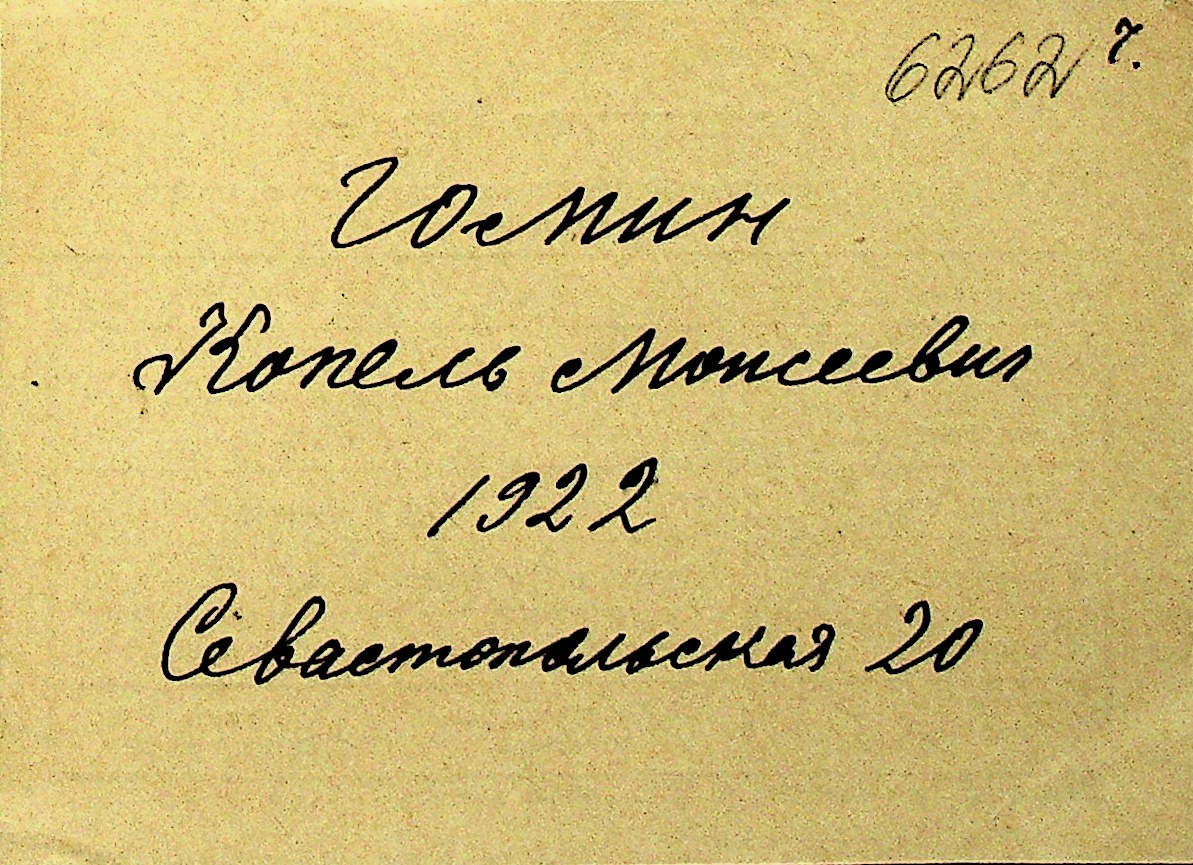 6262 7.
Госмин
Копель Моисеевич
1922
Севастопольская 20